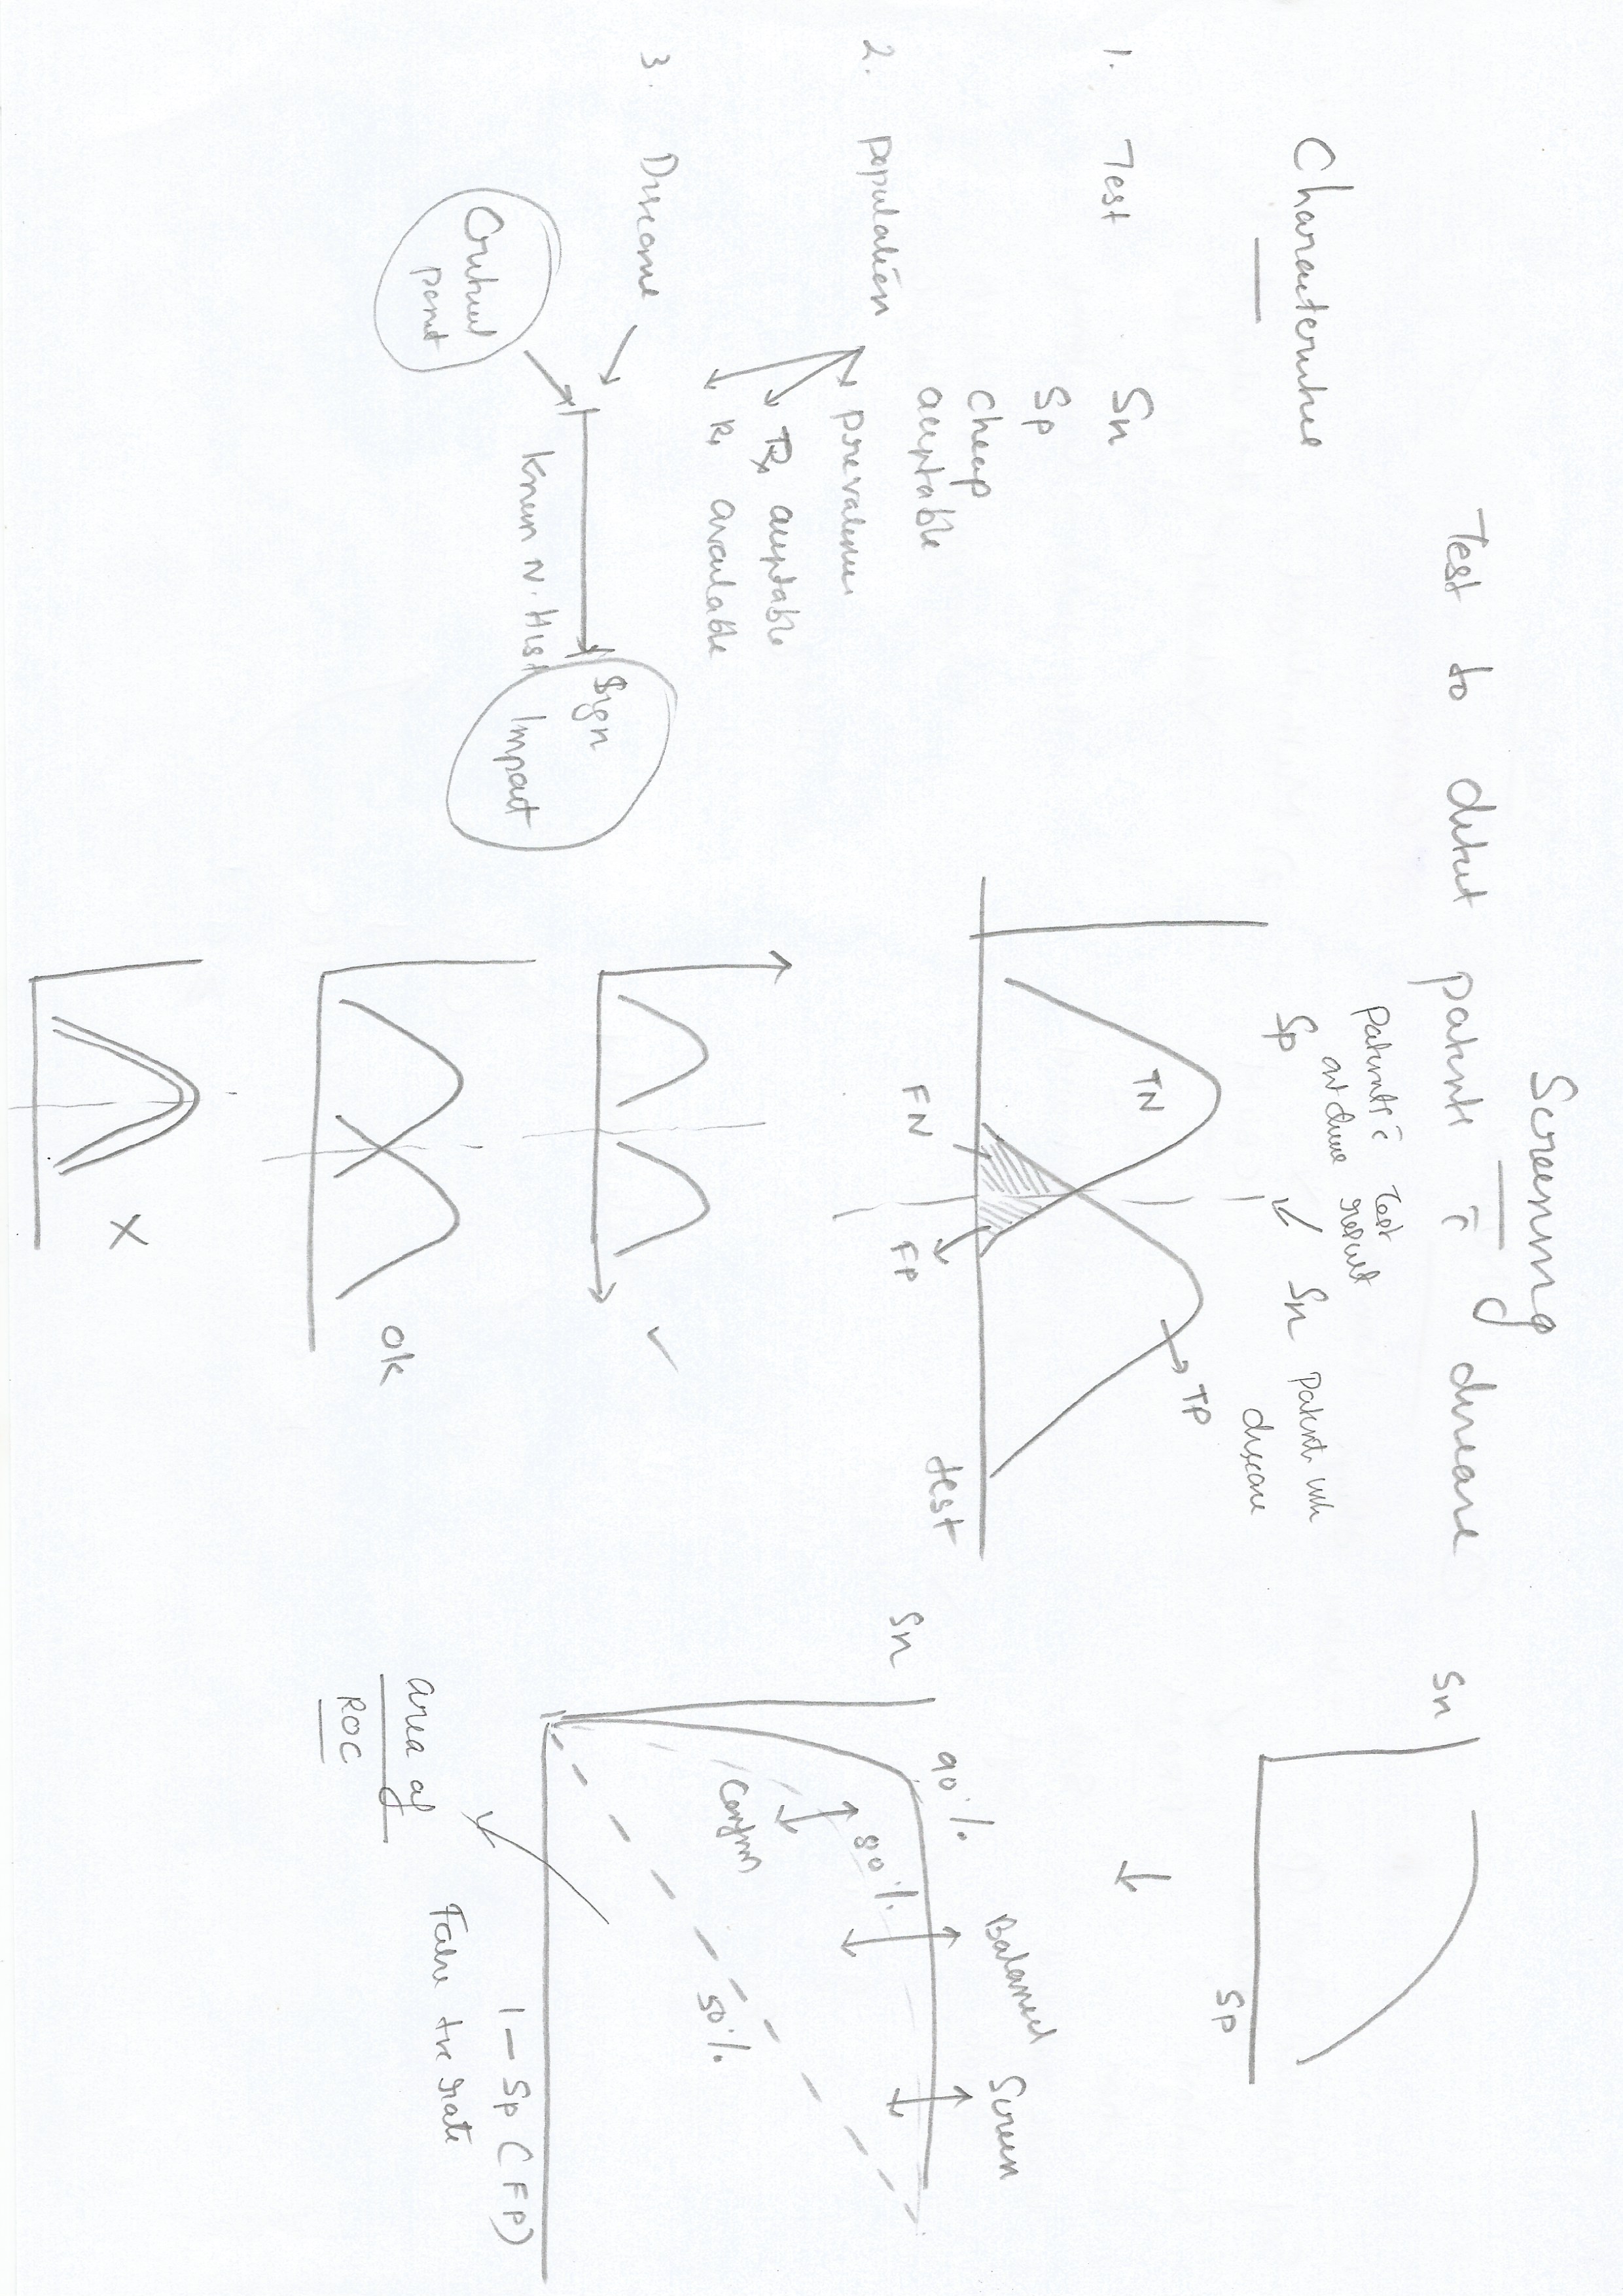 Screening
Test to detect patients c̄ disease
Characteristics
1. Test Sn
Sp
Cheap
acceptable
2. Population
prevalence
Rx acceptable
Rx available
3. Disease
Known N. Hist
Sign
Impact
Critical
point
Patients c̄
out disease
Test
result
Sp
Sn Patients with
disease
TN
TP
FN
FP
test
✓
OK
X
Sn
Sp
Sn
90%
Balanced
Screen
80%
Confirm
50%
1 - Sp (FP)
False +ve rate
area of
ROC